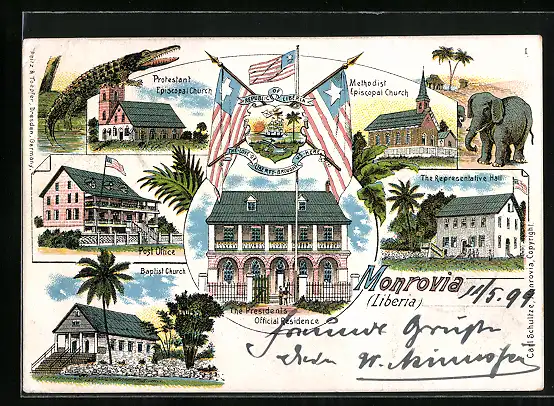 Protestant
Episcopal Church
OF
REPUBLIC LIBERIA
Methodist
Episcopal Church
THE LOVE OF LIBERTY BROUGHT US HERE
Post Office
The Representative Hall.
Baptist Church
The President's
Official Residence
Monrovia
(Liberia)
11/5. 99
Grüße
W.
Dresden, Germany.
Carl Schultze, Monrovia, Copyright.